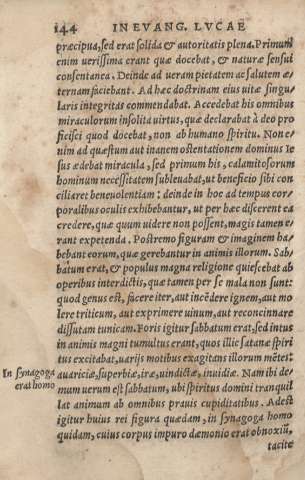 144 IN EVANG. LVCAE
præcipua, sed erat solida & autoritatis plena. Primum
enim uerissima erant quæ docebat, & naturæ sensui
consentanea. Deinde ad ueram pietatem ac salutem æ-
ternam faciebant. Ad hæc doctrinam eius uitæ singu-
laris integritas commendabat. Accedebat his omnibus
miraculorum insolita uirtus, quæ declarabat à deo pro
ficisci quod docebat, non ab humano spiritu. Non e-
nim ad quæstum aut inanem ostentationem dominus Ie
sus ædebat miracula, sed primum his, calamitosorum
hominum necessitatem subleuabat, ut beneficio sibi con
ciliaret beneuolentiam: deinde in hoc ad tempus cor-
poralibus oculis exhibebantur, ut per hæc discerent ea
credere, quæ quum uidere non possent, magis tamen e-
rant expetenda. Postremo figuram & imaginem ha-
bebant eorum, quæ gerebantur in animis illorum. Sab-
batum erat, & populus magna religione quiescebat ab
operibus interdictis, quæ tamen per se mala non sunt:
quod genus est, fucere iter, aut incedere ignem, aut mo
lere triticum, aut exprimere uinum, aut reconcinnare
dissutam tunicam. Foris igitur sabbatum erat, sed intus
in animis magni tumultus erant, quos illic satanæ spiri
tus excitabat, uarijs motibus exagitans illorum mētes:
In synagoga auariciæ, superbiæ, iræ, uindictæ, inuidiæ. Nam ibi de-
erat homo mum uerum est sabbatum, ubi spiritus domini tranquil
lat animum ab omnibus prauis cupiditatibus. Adest
igitur huius rei figura quædam, in synagoga homo
quidam, cuius corpus impuro dæmonio erat obnoxiū,
tacite